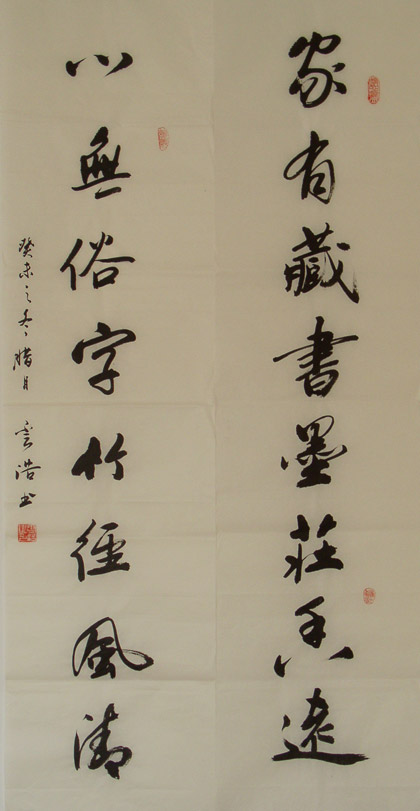 家有藏書墨莊香遠
心無俗字竹徑風清
癸未之冬腊月 雲浩书